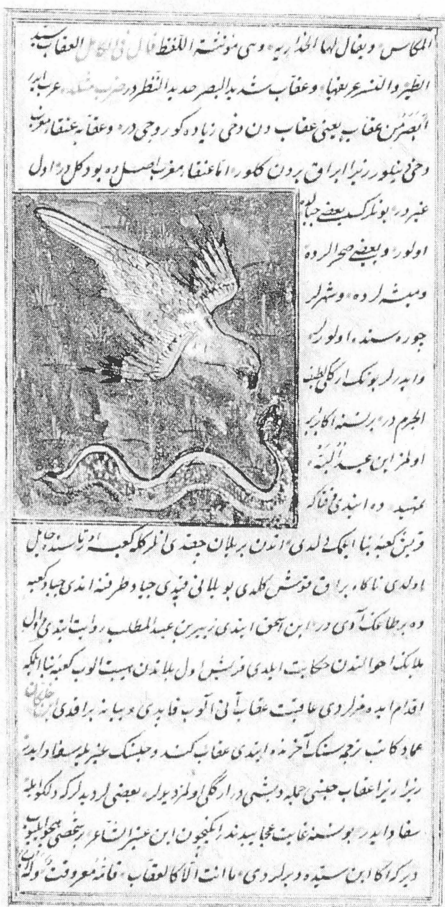 المكاس ويقال لها الخدارية وهى مؤنثة اللفظ قال فى الكامل العقاب سيد
الطير والنسر عريفها وعقاب شديد البصر حديد النظر در ضرب مثلده عرب ايدر
ابصر من عقاب يعنى عقاب دن دخى زياده كوروجى در وعقابه عنقا مغرب
دخى ديلور زيرا ايراق يردن كلور اما عنقا مغرب اصلده بو دكل در اول
غيردر بونلر بعضى جبالده
اولور وبعضى صحرالرده
وبيشه لرده وشهرلر
چوره سنده اولورلر
وايدرلر بونك اركلى لطيف
الجرم در برنسنه اكا برابر
اولمز ابن عبد البر
تمهيد ده ايتدى قچانكه
قريش كعبه بنا ايتمكه كلدى اندن بر يلان چقدى انلرله كعبه اورتاسنده حايل
اولدى ناكاه بر اق قوش كلدى بو يلانى قپدى جياد طرفنه اتدى جياد كعبه
ده بر طاغك آدى در ابن اسحق ايتدى زبير بن عبد المطلب روايت ايتدى اول
يلانك احوالندن حكايت ايلدى قريش اول يلاندن هيبت الوب كعبه بنا ايتمكه
اقدام ايده مزلردى عاقبت عقاب آنى آلوب قاپدى ويبانه براقدى ابن خلكان
عماد كاتب ترجمه سنك آخرنده ايتدى عقاب كندو جنسنك غيريله سفاد ايدر
زيرا عقاب جنسى جمله ديشى در اركلى اولمز ديديلر بعضى لر ديديلركه دلكو ايله
سفاد ايدر بو نسنه غايت عجايبدندر انكچون ابن عنين الشاعر بر شخصى هجو ايليوب
ديركه اكا ابن سيده ديرلردى ما انت الا كالعقاب فامه معروفة وله